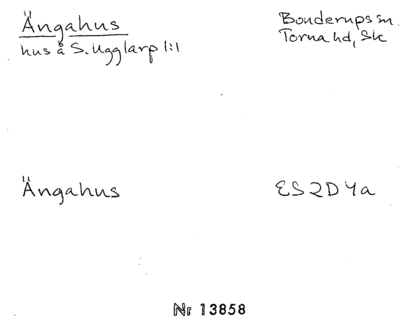 Ängahus
hus å S. Ugglarp 1:1
Bonderups sn
Torna hd, Sk
Ängahus
ES 2D 4a
Nr 13858